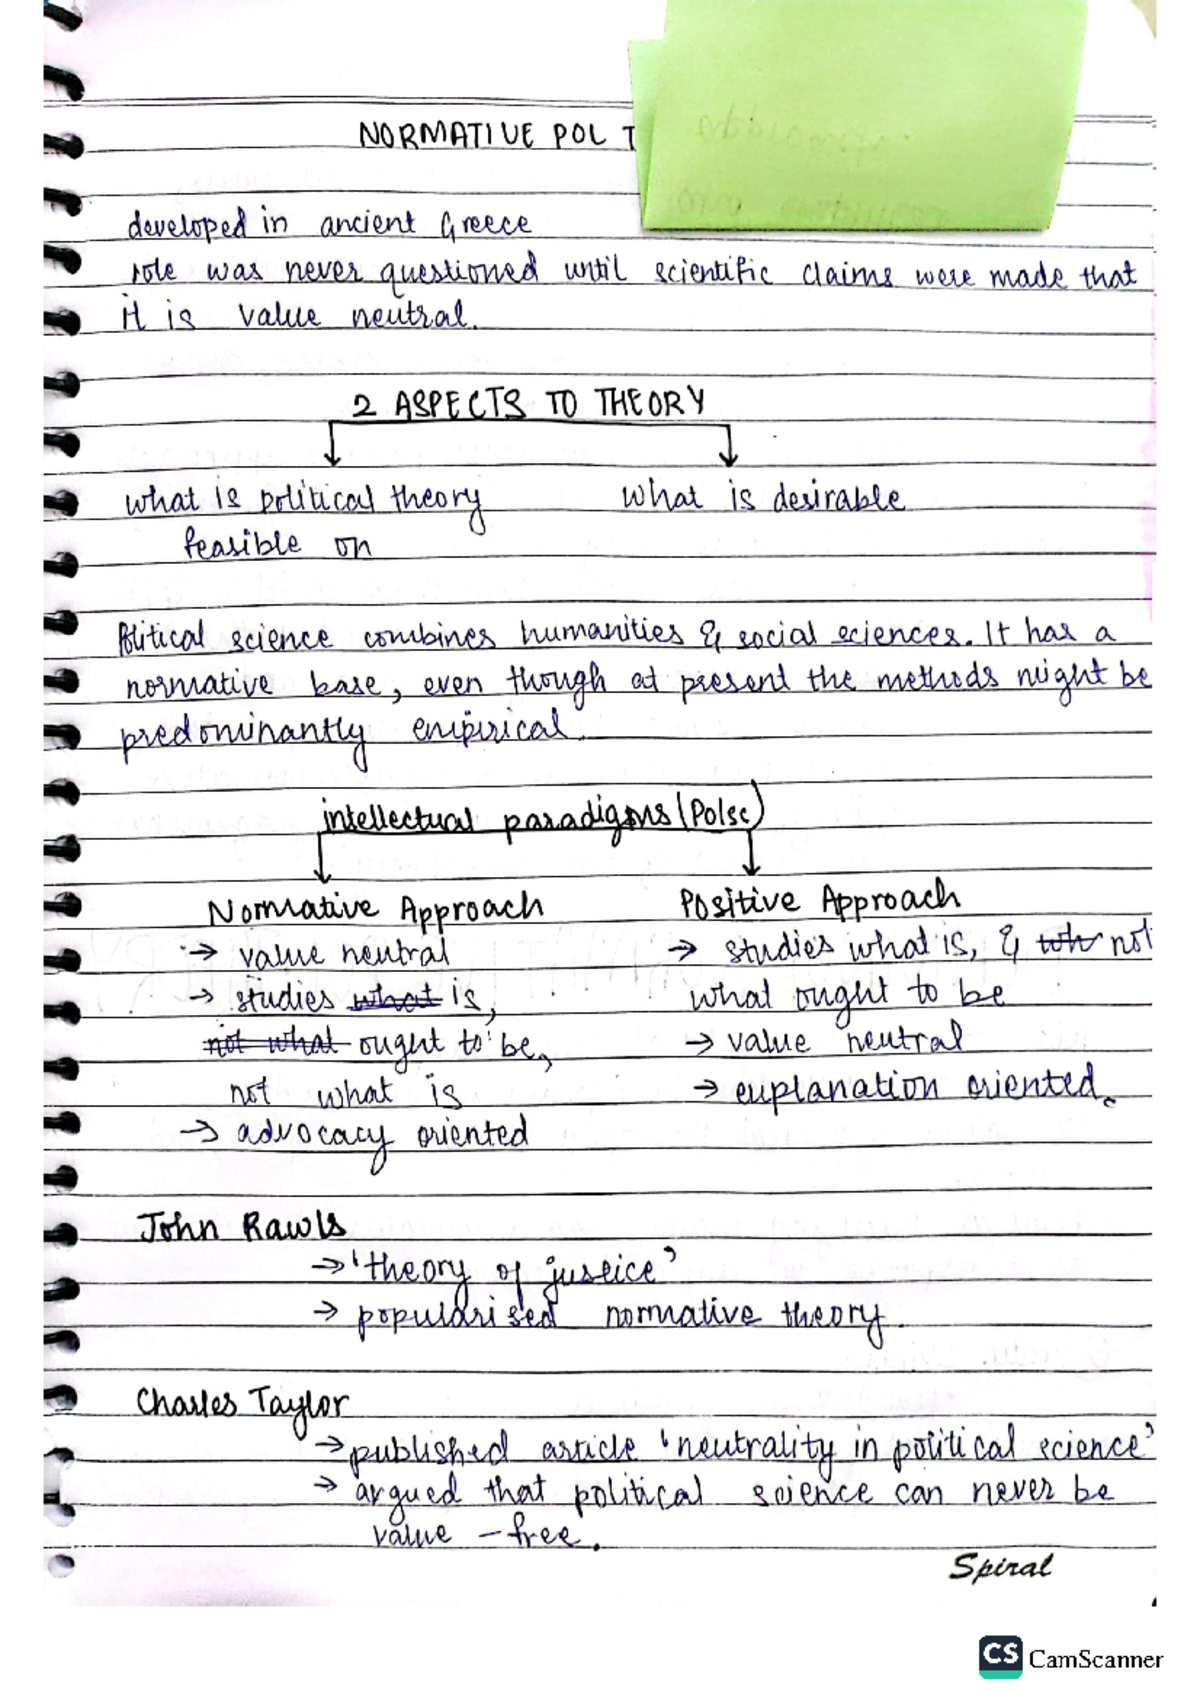 NORMATIVE POL T
developed in ancient Greece
role was never questioned until scientific claims were made that
it is value neutral.
2 ASPECTS TO THEORY
what is political theory What is desirable
feasible on
Political science combines humanities & social sciences. It has a
normative base, even though at present the methods might be
predominantly empirical.
intellectual paradigms (Polsc)
Normative Approach Positive Approach
→ value neutral → studies what is, & not
→ studies what is, what ought to be
not what ought to be, → value neutral
not what is → explanation oriented.
→ advocacy oriented
John Rawls
→ 'theory of justice'
→ popularised normative theory.
Charles Taylor
→ published article 'neutrality in political science'
→ argued that political science can never be
value - free.
Spiral
CS CamScanner